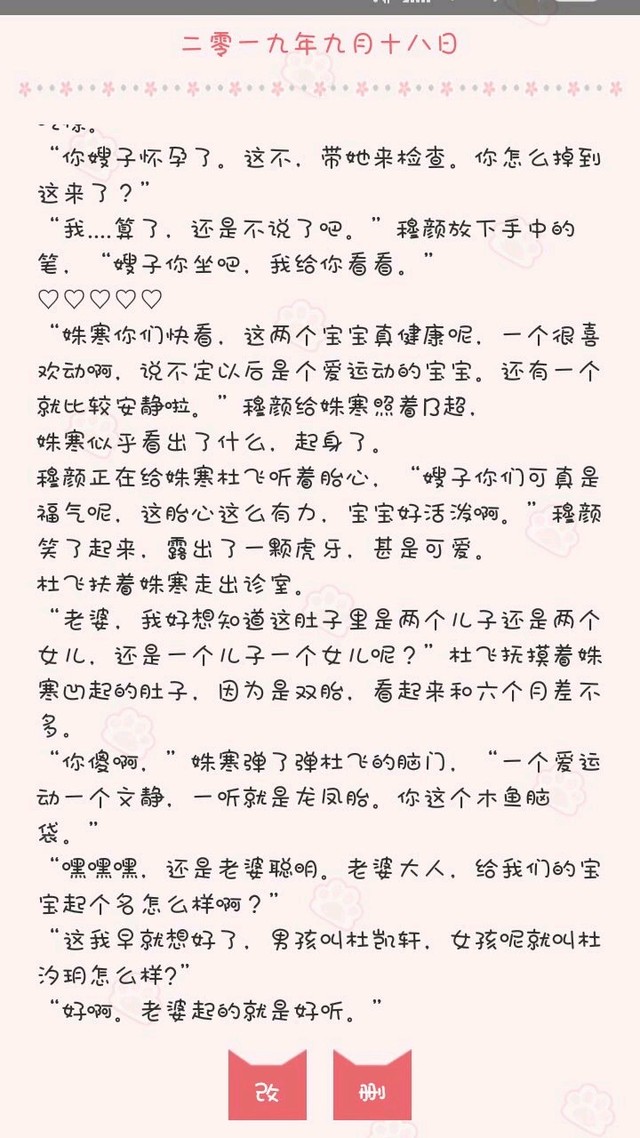 二零一九年九月十八日
“你嫂子怀孕了。这不，带她来检查。你怎么掉到
这来了？”
“我....算了，还是不说了吧。”穆颜放下手中的
笔，“嫂子你坐吧，我给你看看。”
♡♡♡♡♡
“姝寒你们快看，这两个宝宝真健康呢，一个很喜
欢动啊，说不定以后是个爱运动的宝宝。还有一个
就比较安静啦。”穆颜给姝寒照着B超，
姝寒似乎看出了什么，起身了。
穆颜正在给姝寒杜飞听着胎心，“嫂子你们可真是
福气呢，这胎心这么有力，宝宝好活泼啊。”穆颜
笑了起来，露出了一颗虎牙，甚是可爱。
杜飞扶着姝寒走出诊室。
“老婆，我好想知道这肚子里是两个儿子还是两个
女儿，还是一个儿子一个女儿呢？”杜飞抚摸着姝
寒凹起的肚子，因为是双胎，看起来和六个月差不
多。
“你傻啊，”姝寒弹了弹杜飞的脑门，“一个爱运
动一个文静，一听就是龙凤胎。你这个木鱼脑
袋。”
“嘿嘿嘿，还是老婆聪明。老婆大人，给我们的宝
宝起个名怎么样啊？”
“这我早就想好了，男孩叫杜凯轩，女孩呢就叫杜
汐玥怎么样?”
“好啊。老婆起的就是好听。”
改 删